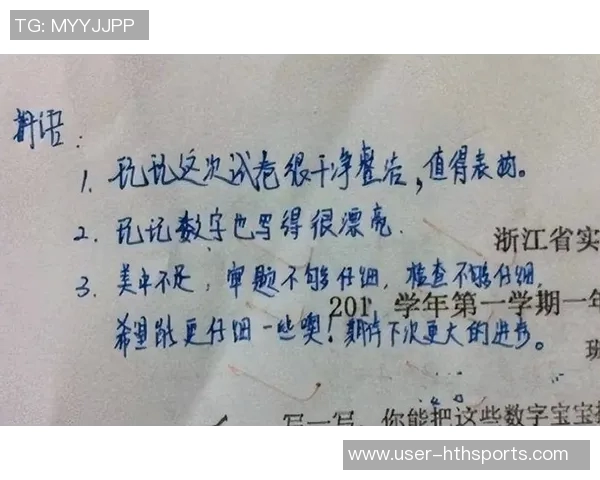 TG: MYYJJPP
评语：
1. 玩玩这次试卷很干净整洁，值得表扬。
2. 玩玩数字也写得很漂亮.
浙江省实
3. 美中不足，审题不够仔细，检查不够仔细，
201 学年第一学期一年
希望能更仔细一些噢！期待下次更大的进步。
班
写一写，你能把这些数字宝宝
www-user-hthsports.com